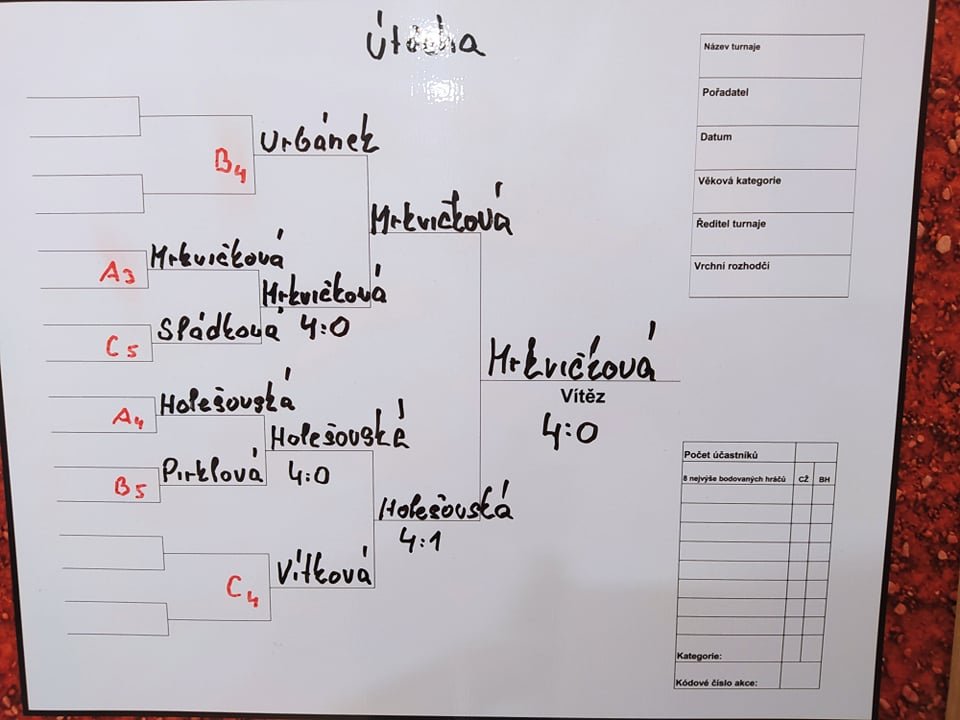 Útěcha
Název turnaje
Pořadatel
Datum
Věková kategorie
Ředitel turnaje
Vrchní rozhodčí
B4
Urbánek
Mrkvičková
A3
Mrkvičková
Mrkvičková
4:0
C5
Spádková
Mrkvičková
Vítěz
4:0
A4
Holešovská
Holešovská
4:0
B5
Pirklová
Holešovská
4:1
C4
Vítková
Počet účastníků
8 nejvýše bodovaných hráčů CŽ BH
Kategorie:
Kódové číslo akce: